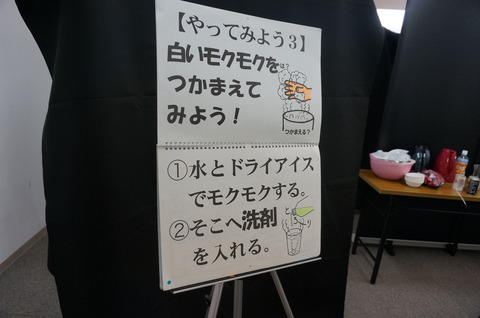 【やってみよう3】
白いモクモクをは?
つかまえて
みよう!
つかまえる?
①水とドライアイス
でモクモクする。
②そこへ洗剤
を入れる。